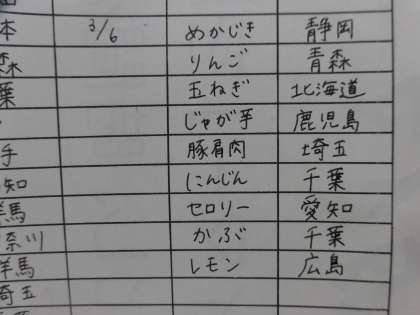 本 3/6 めかじき 静岡
森 りんご 青森
葉 玉ねぎ 北海道
じゃが芋 鹿児島
手 豚肩肉 埼玉
知 にんじん 千葉
馬 セロリー 愛知
奈川 かぶ 千葉
群馬 レモン 広島
埼玉